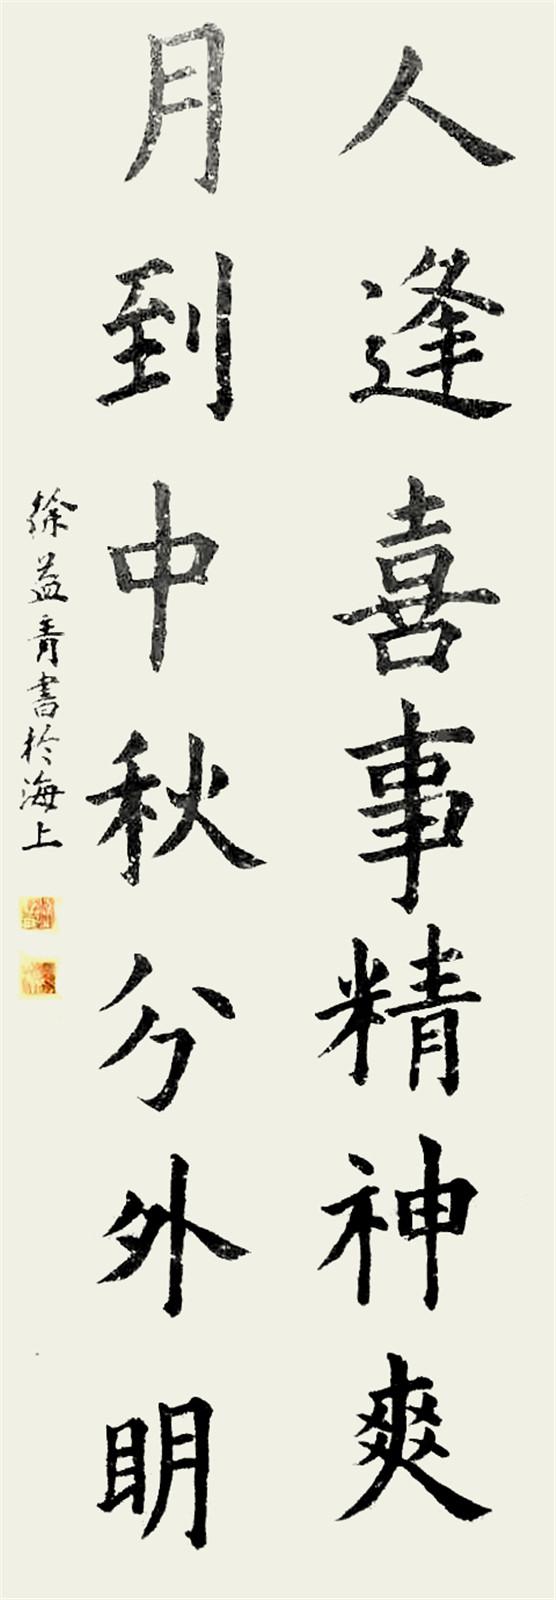 人逢喜事精神爽
月到中秋分外明
徐益青書於海上